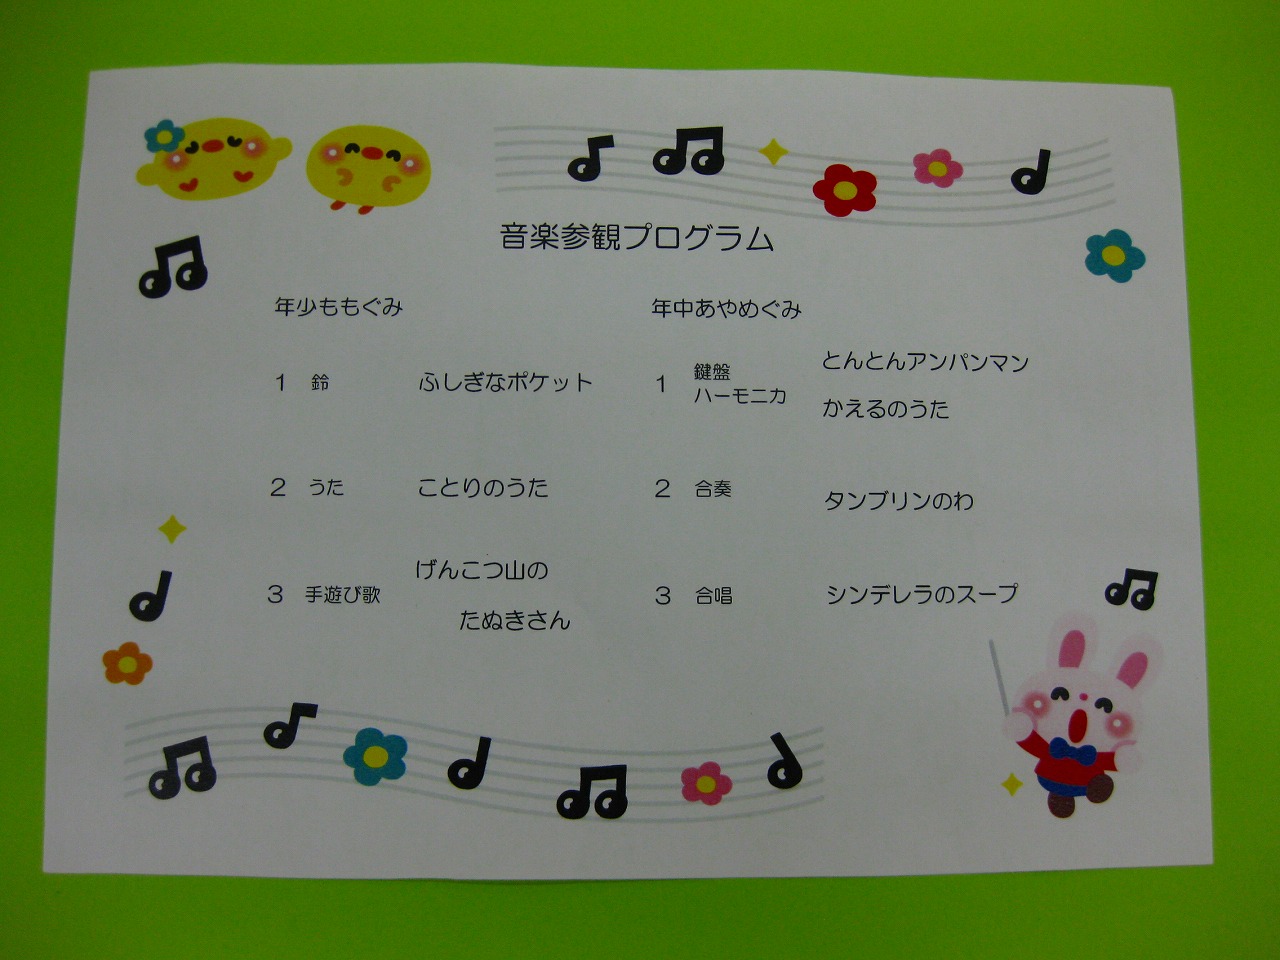 音楽参観プログラム
年少ももぐみ
1 鈴 ふしぎなポケット
2 うた ことりのうた
3 手遊び歌 げんこつ山の
たぬきさん
年中あやめぐみ
1 鍵盤ハーモニカ とんとんアンパンマン
かえるのうた
2 合奏 タンブリンのわ
3 合唱 シンデレラのスープ